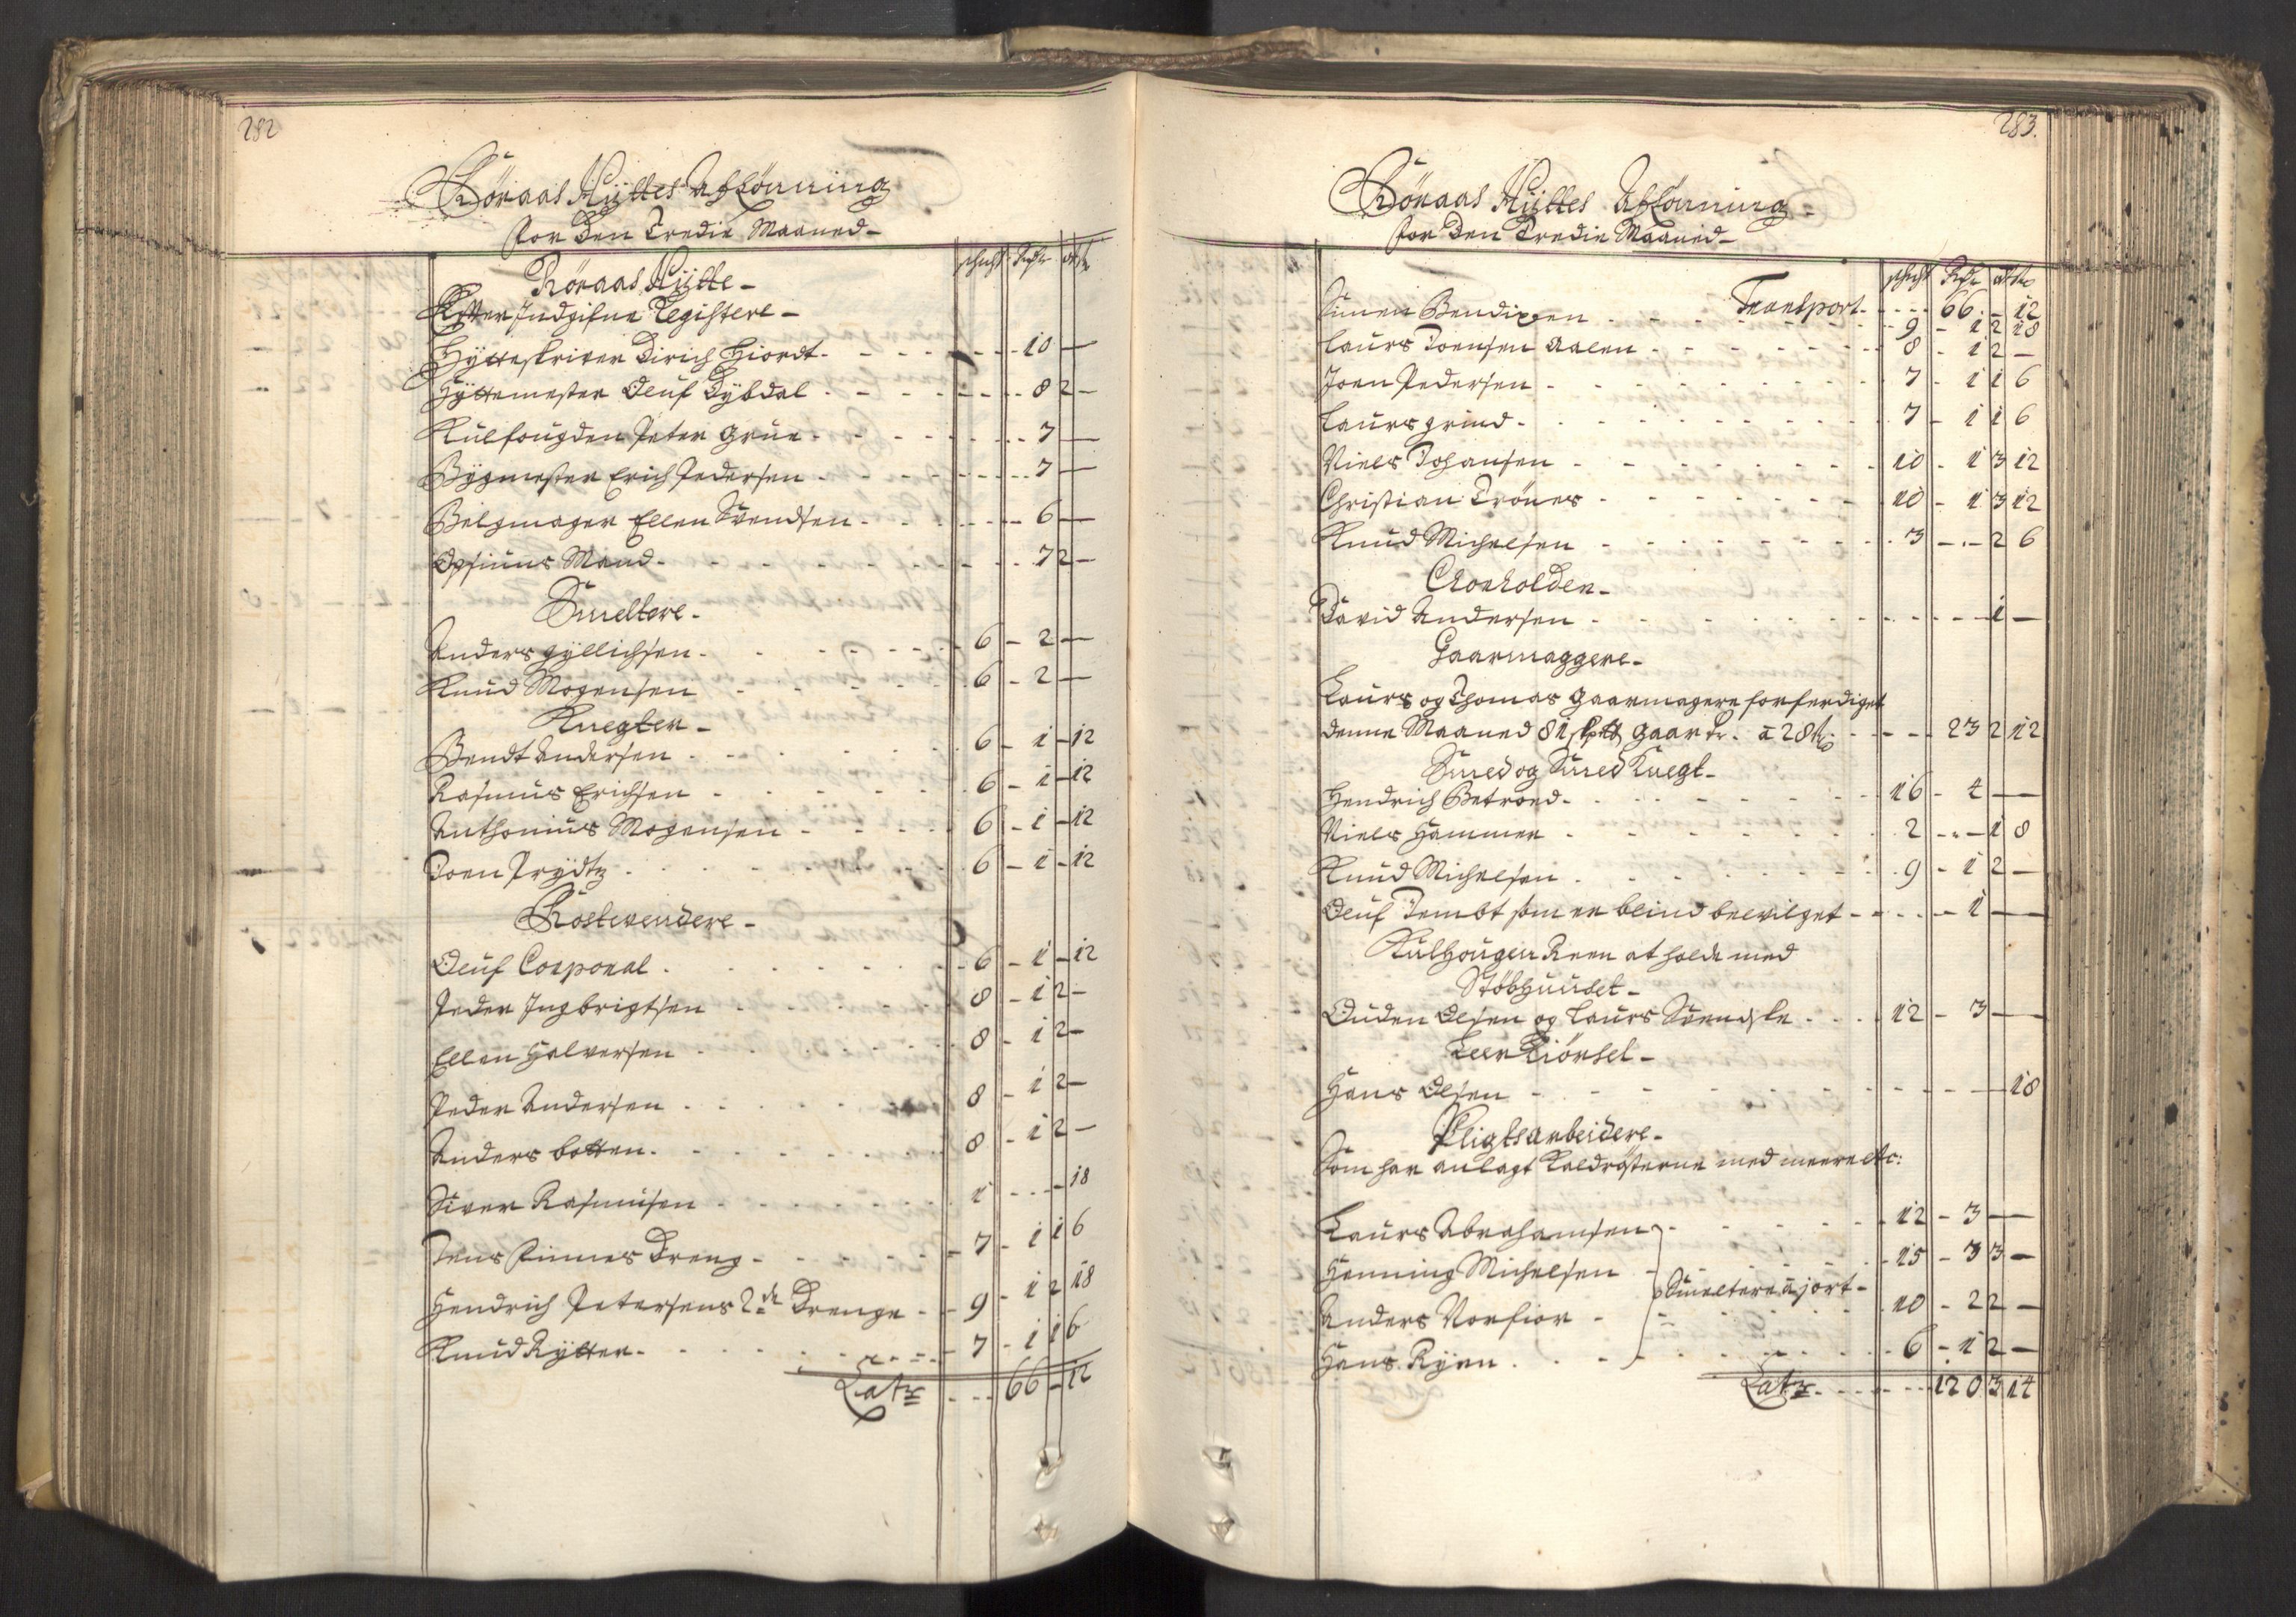 282
Röraas Hÿttes Aflönning
for Den Tredie Maaned-
schicht Rdr ort ß
Röraas Hÿtte-
Efter Indgifne Registere-
Hÿtteskriver Dirich Hiordt - - - 10 —
Hÿttemester Oluf Dÿbdal - - - 8 2 —
Kulfougden Peter Grue - - - 7 —
Bÿgmester Erich Pedersen - - - 7 —
Belgmager Ellen Svendsen - - - 6 —
Opsiuns Mand - - - 7 2 —
Smeltere-
Anders gÿllichsen - - - 6 - 2 —
Knud Mogensen - - - 6 - 2 —
Knegter-
Bendt Andersen - - - 6 - 1 - 12
Rasmus Erichsen - - - 6 - 1 - 12
Anthonius Mogensen - - - 6 - 1 - 12
Joen Prÿdtz - - - 6 - 1 - 12
Rostevendere-
Oluf Corporal - - - 6 - 1 - 12
Peder Ingbrigtsen - - - 8 - 1 2 -
Ellen Halvorsen - - - 8 - 1 2 -
Peder Andersen - - - 8 - 1 2 -
Anders botten - - - 8 - 1 2 -
Siver Rasmusen - - - 1 - - - 18
Jens Finnes Dreng - - - 7 - 1 1 6
Hendrich Petersens 2de Drenge - - 9 - 1 2 18
Knud Rÿtter - - - 7 - 1 1 6
Latr - - - 66 - 12
283.
Röraas Hÿttes Aflönning-
for Den Tredie Maaned-
schicht Rdr ort ß
Transport - - - 66 - 12
Simen Bendixen - - - 9 - 1 2 18
Laurs Joensen Aalen - - - 8 - 1 2 —
Joen Pedersen - - - 7 - 1 1 6
Laurs grind - - - 7 - 1 1 6
Niels Johansen - - - 10 - 1 3 12
Christian Trönes - - - 10 - 1 3 12
Knud Michelsen - - - 3 - - 2 6
Chorholder-
David Andersen - - - 1 —
Gaarmaggere-
Laurs og Thomas Gaarmagere forferdiget
denne Maaned 81 sk℔ gaar kr. a 28 ß - - - 23 2 12
Smed og Smed Knegt-
Hendrich Betroed - - - 16 - 4 — —
Niels Hammer - - - 2 - - - 1 8
Knud Michelsen - - - 9 - 1 2 —
Oluf Jembt som er blind bevilget - - - 1 — —
Kulhougen Reen at holde med
Stöbhuuset-
Ouden Olsen og Laurs Svendske - - - 12 - 3 — —
Leer Kiörsel-
Hans Olsen - - - 18
Pligtsarbeidere-
Som har anlagt Kaldrösterne med meere etc:
Laurs Abrahamsen - - - 12 - 3 — —
Henning Michelsen - - - 15 - 3 3 —
Smeltere gjort-
Anders Norfior - - - 10 - 2 2 —
Hans Rÿen - - - 6 - 1 2 —
Latr - - - 120 3 14